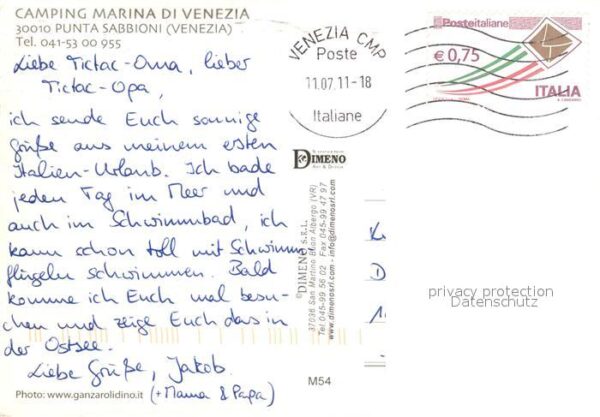 CAMPING MARINA DI VENEZIA
30010 PUNTA SABBIONI (VENEZIA)
Tel. 041-53 00 955
Liebe Tictac-Oma, lieber
Tictac-Opa,
ich sende Euch sonnige
Grüße aus meinem ersten
Italien-Urlaub. Ich bade
jeden Tag im Meer und
auch im Schwimmbad, ich
kann schon toll mit Schwimm
flügeln schwimmen. Bald
komme ich Euch mal besu-
chen und zeige Euch das in
der Ostsee.
Liebe Grüße, Jakob.
(+ Mama & Papa)
Photo: www.ganzarolidino.it
VENEZIA CMP
Poste
11.07.11-18
Italiane
Posteitaliane
€ 0,75
ITALIA
DIMENO
© DIMENO S.R.L.
37036 San Martino Buon Albergo (VR)
Tel. 045-99 56 02 - Fax 045-99 47 97
www.dimenosrl.com - info@dimenosrl.com
M54
D
privacy protection
Datenschutz